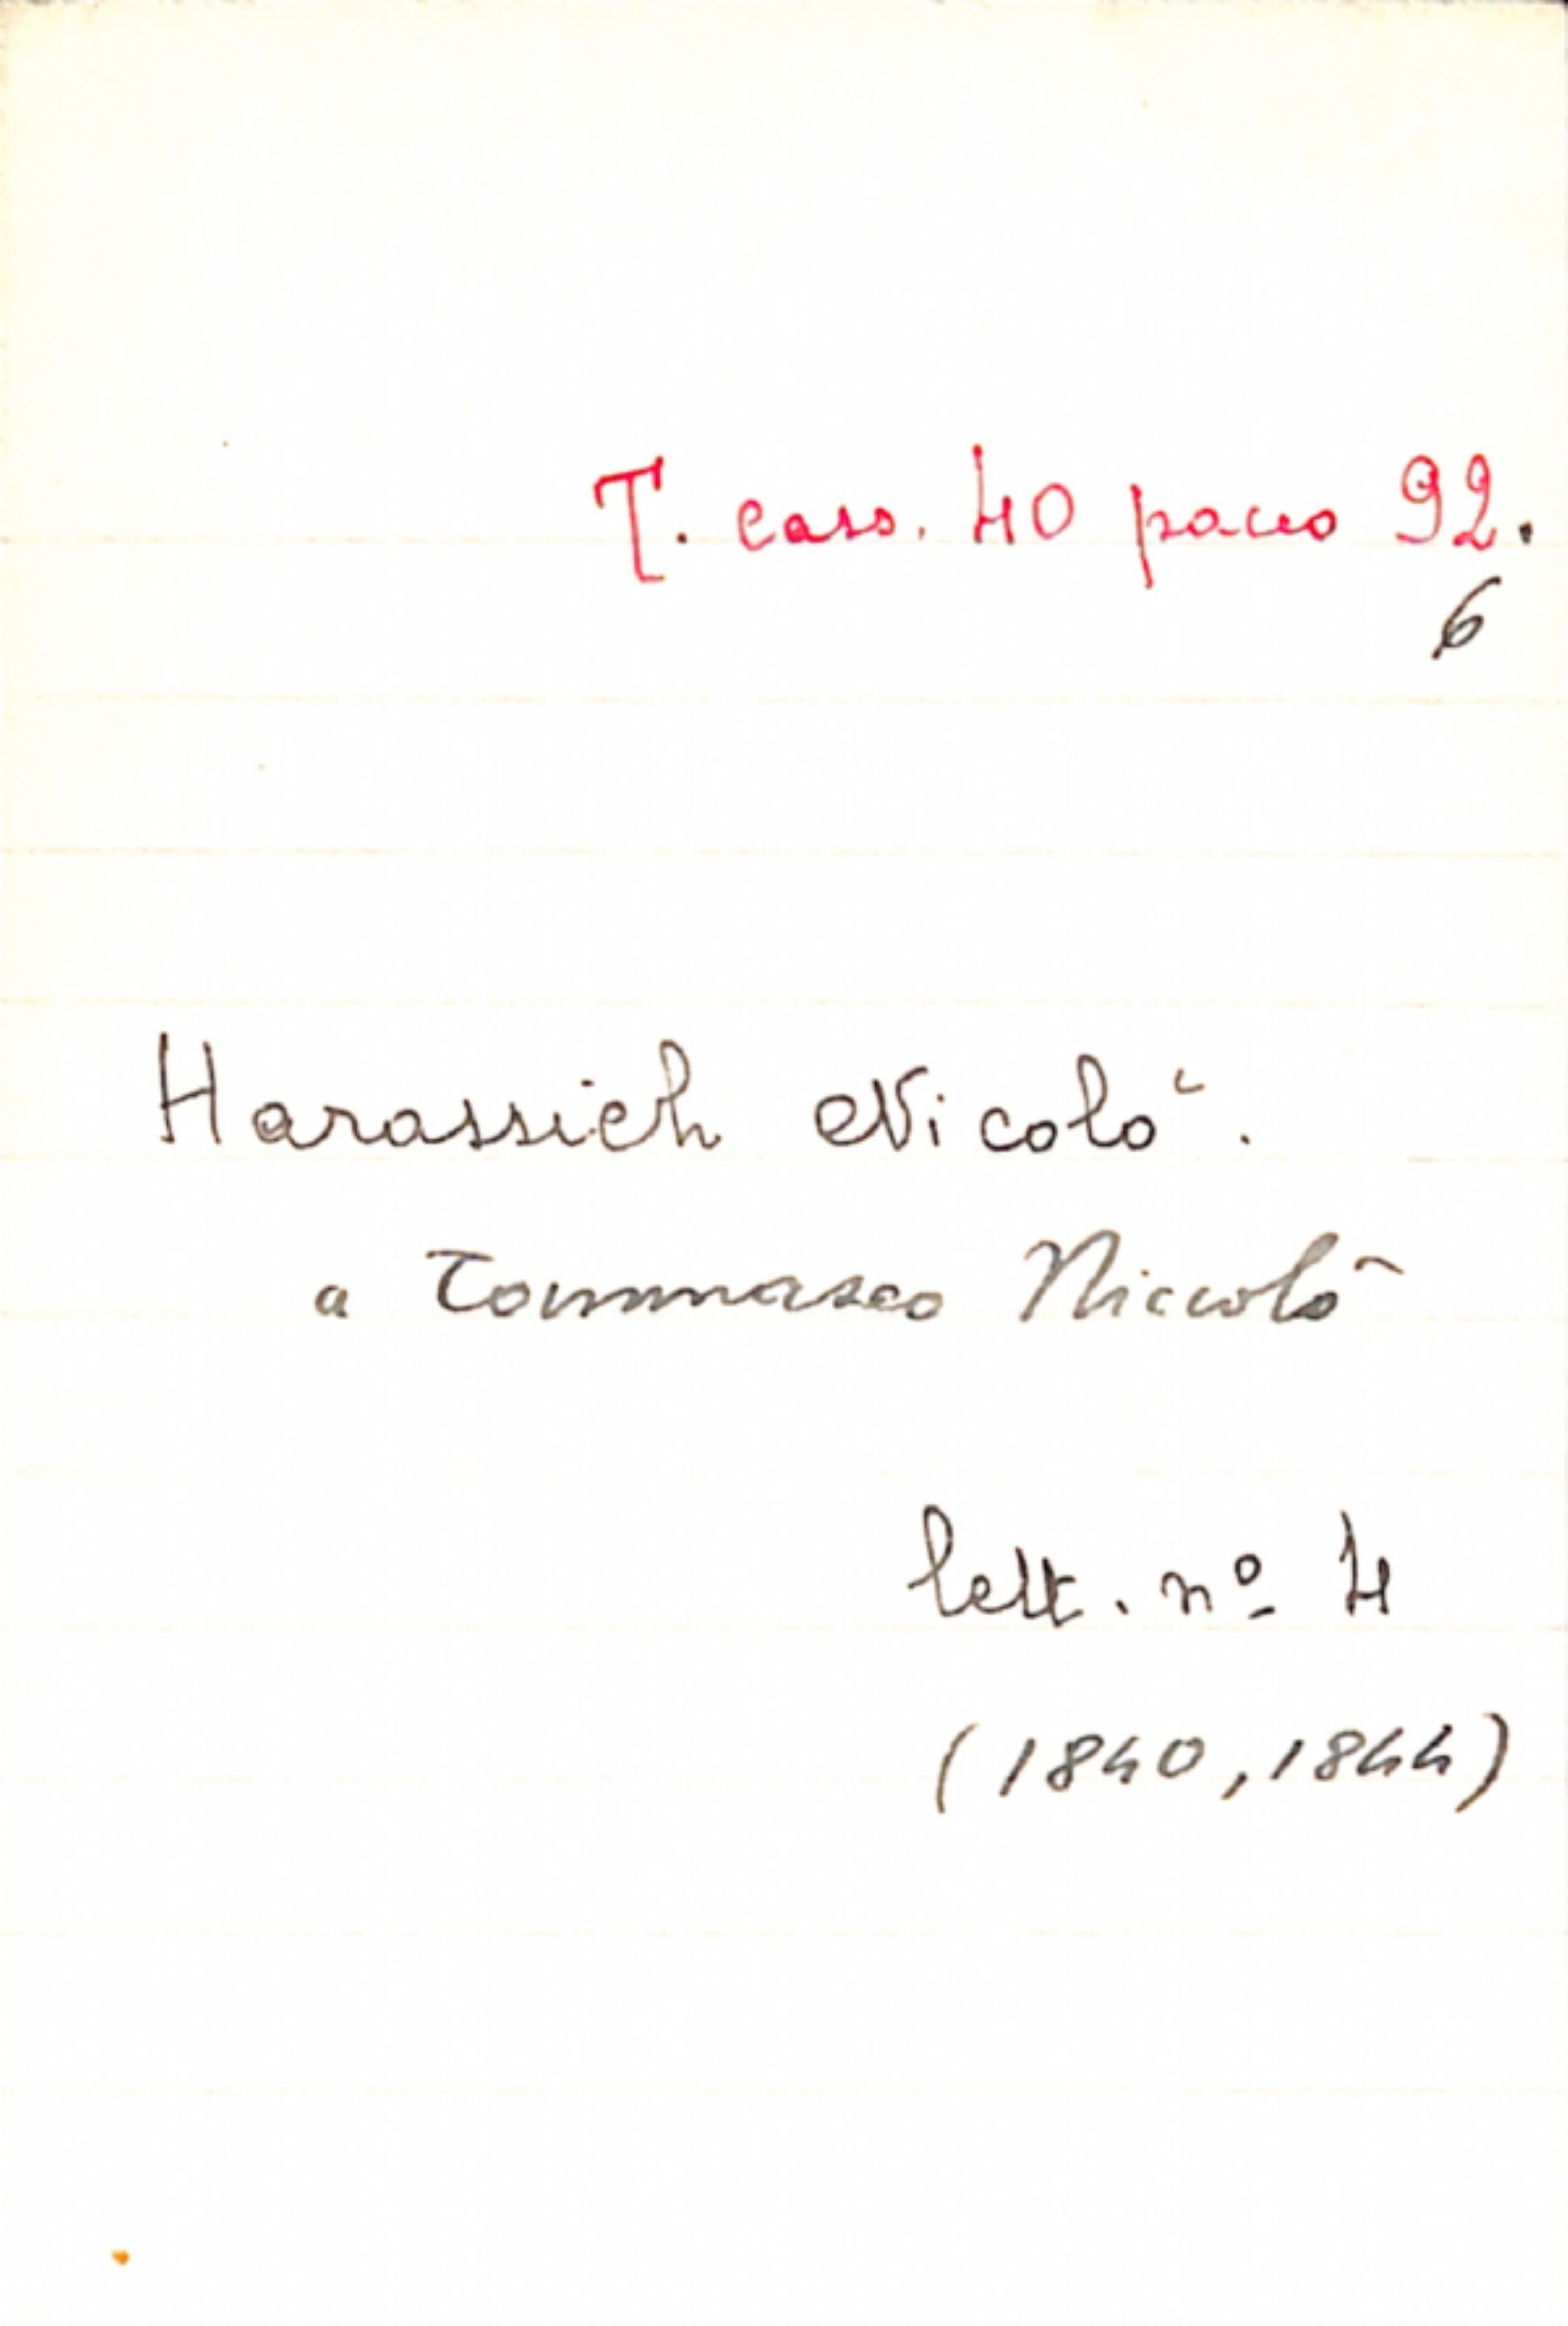 T. cass. 40 pacco 92.
6
Harassich Nicolò.
a Tommaseo Niccolò
lett. nº 4
(1840, 1844)